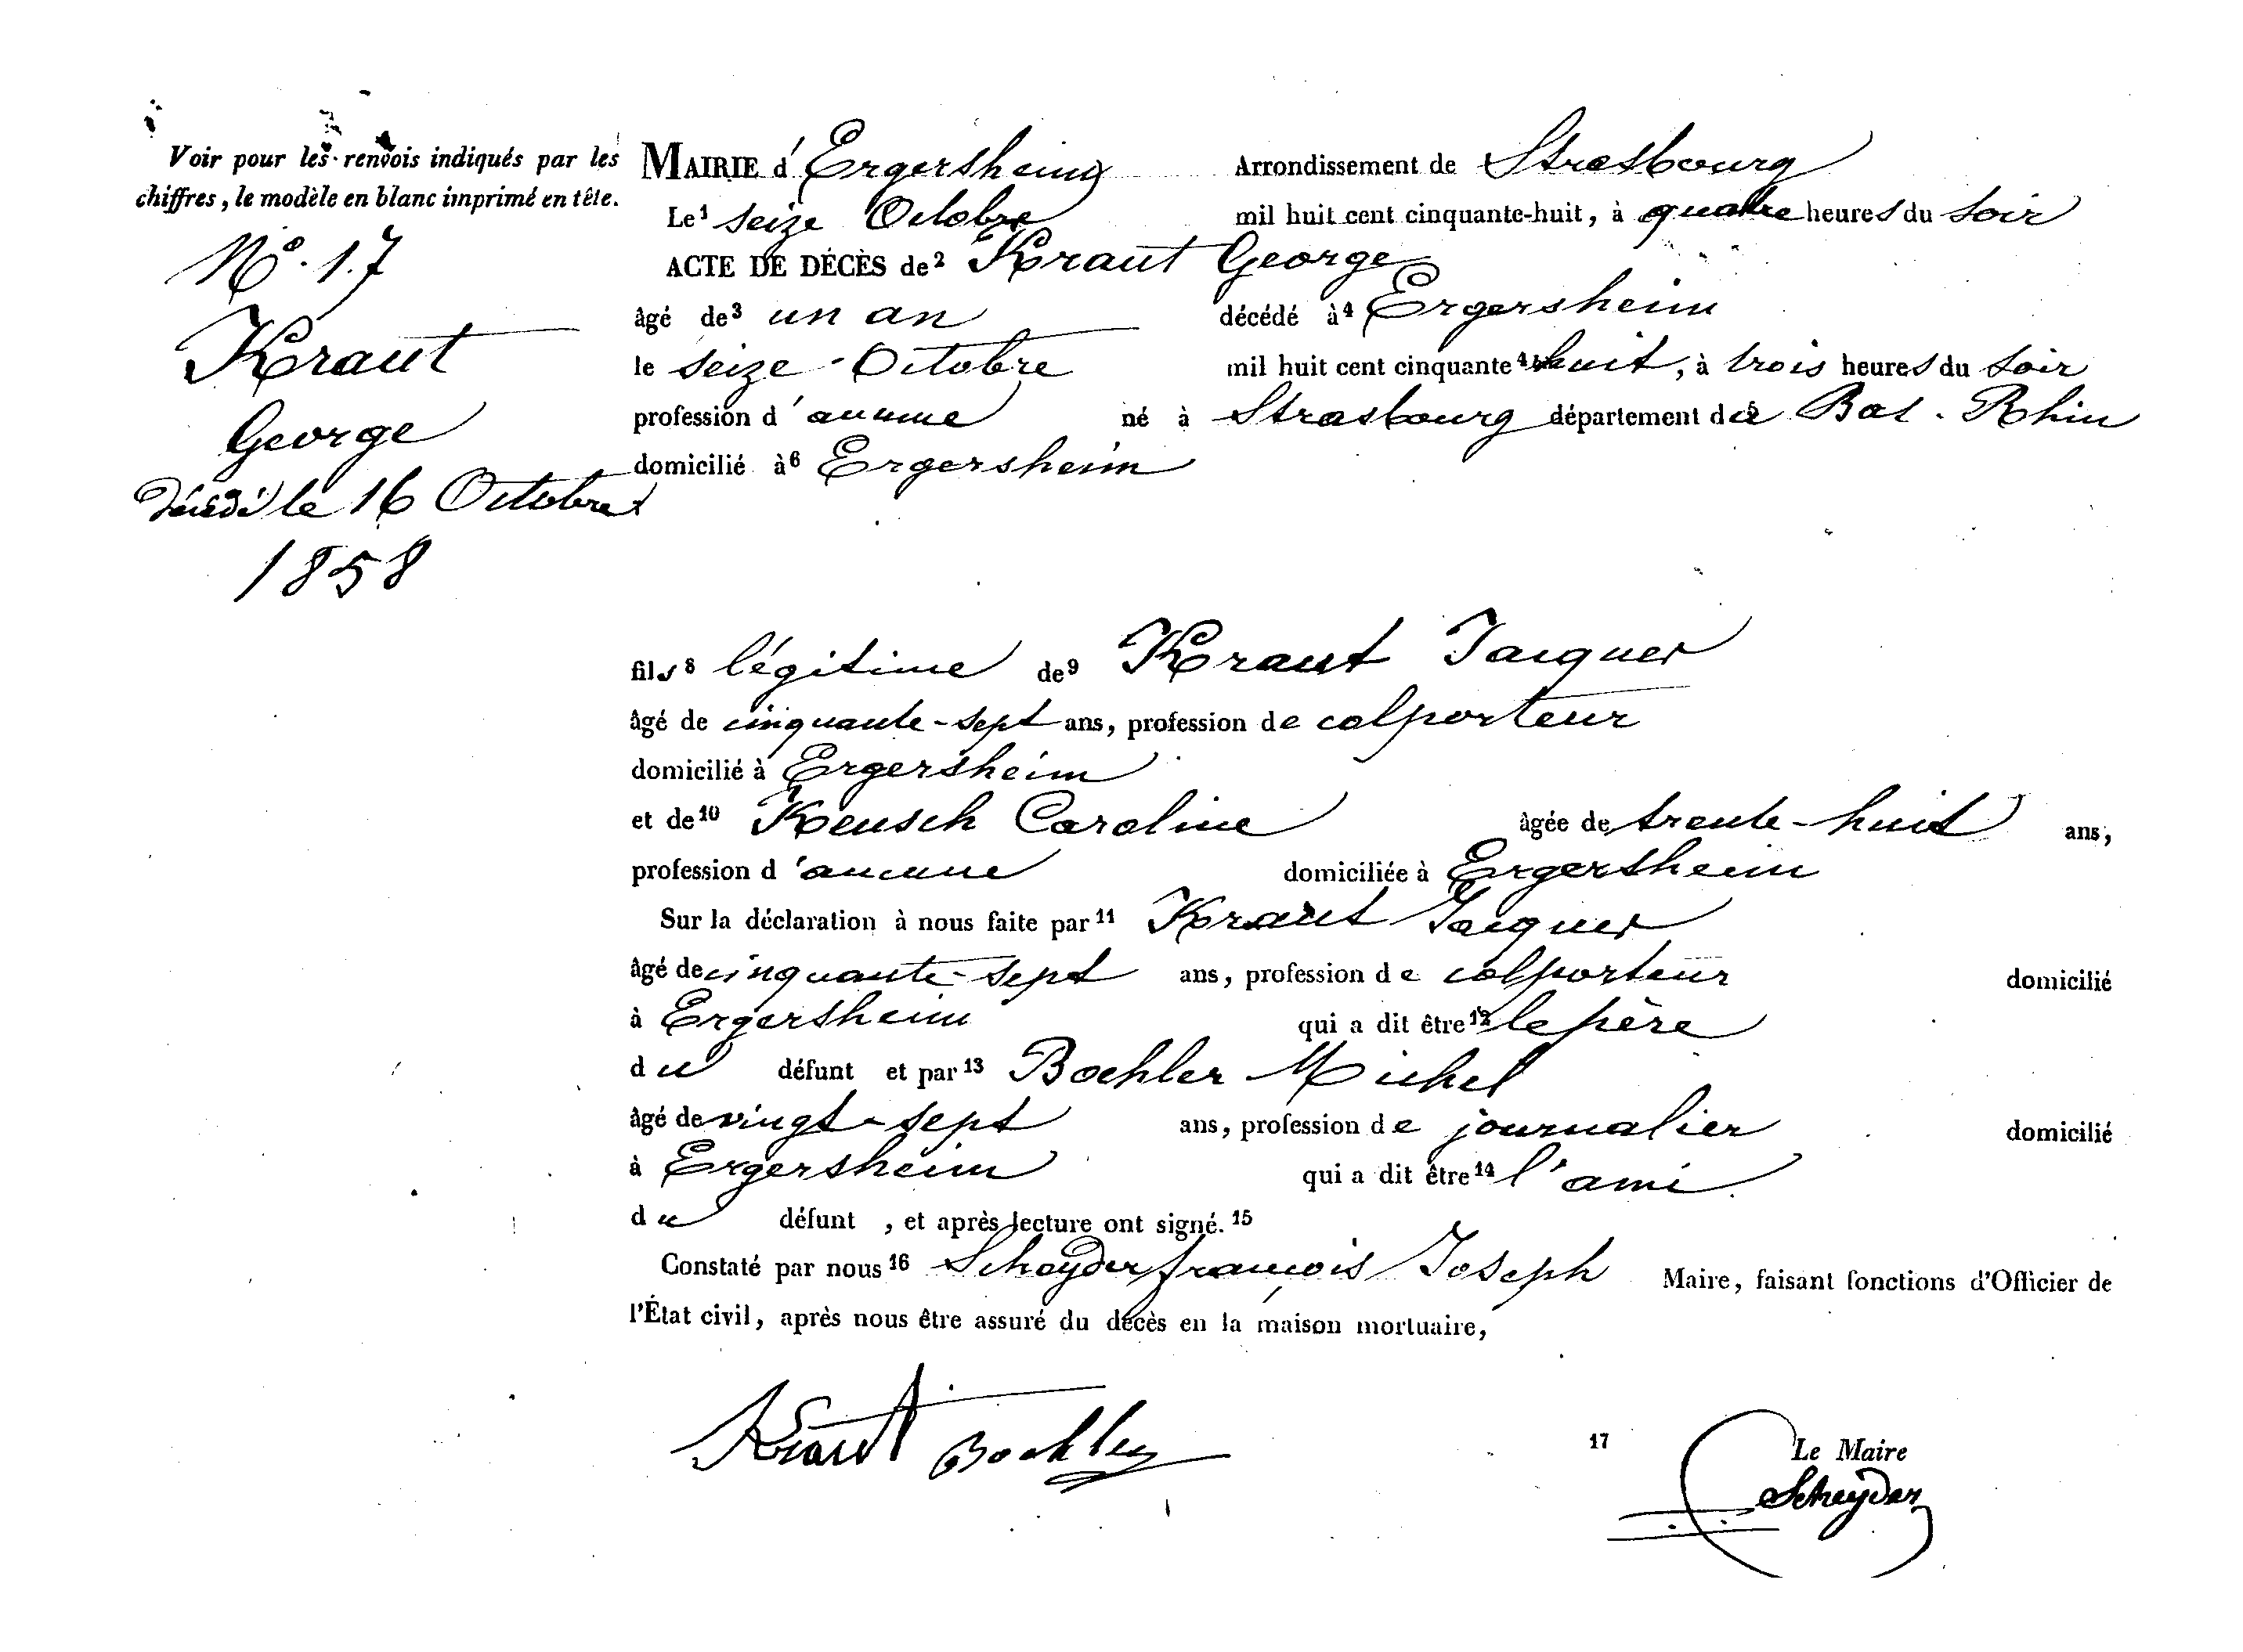 Voir pour les renvois indiqués par les
chiffres, le modèle en blanc imprimé en tête.
N.º 17
Kraut
George
Décédé le 16 Octobre
1858
MAIRIE d'Ergersheim Arrondissement de Strasbourg
Le 1 seize Octobre mil huit cent cinquante-huit, à quatre heures du soir
ACTE DE DÉCÈS de 2 Kraut George
âgé de 3 un an décédé à 4 Ergersheim
le seize Octobre mil huit cent cinquante huit, à trois heures du soir
profession d'aucune né à Strasbourg département du Bas-Rhin
domicilié à 6 Ergersheim
fils 8 légitime de 9 Kraut Jacques
âgé de cinquante-sept ans, profession de colporteur
domicilié à Ergersheim
et de 10 Keusch Caroline âgée de trente-huit ans,
profession d'aucune domiciliée à Ergersheim
Sur la déclaration à nous faite par 11 Kraut Jacques
âgé de cinquante-sept ans, profession de colporteur domicilié
à Ergersheim qui a dit être 12 le père
du défunt et par 13 Boehler Michel
âgé de vingt-sept ans, profession de journalier domicilié
à Ergersheim qui a dit être 14 l'ami
du défunt , et après lecture ont signé. 15
Constaté par nous 16 Scheyder françois Joseph Maire, faisant fonctions d'Officier de
l'État civil, après nous être assuré du décès en la maison mortuaire,
Kraut Boehler
17 Le Maire
Scheyder